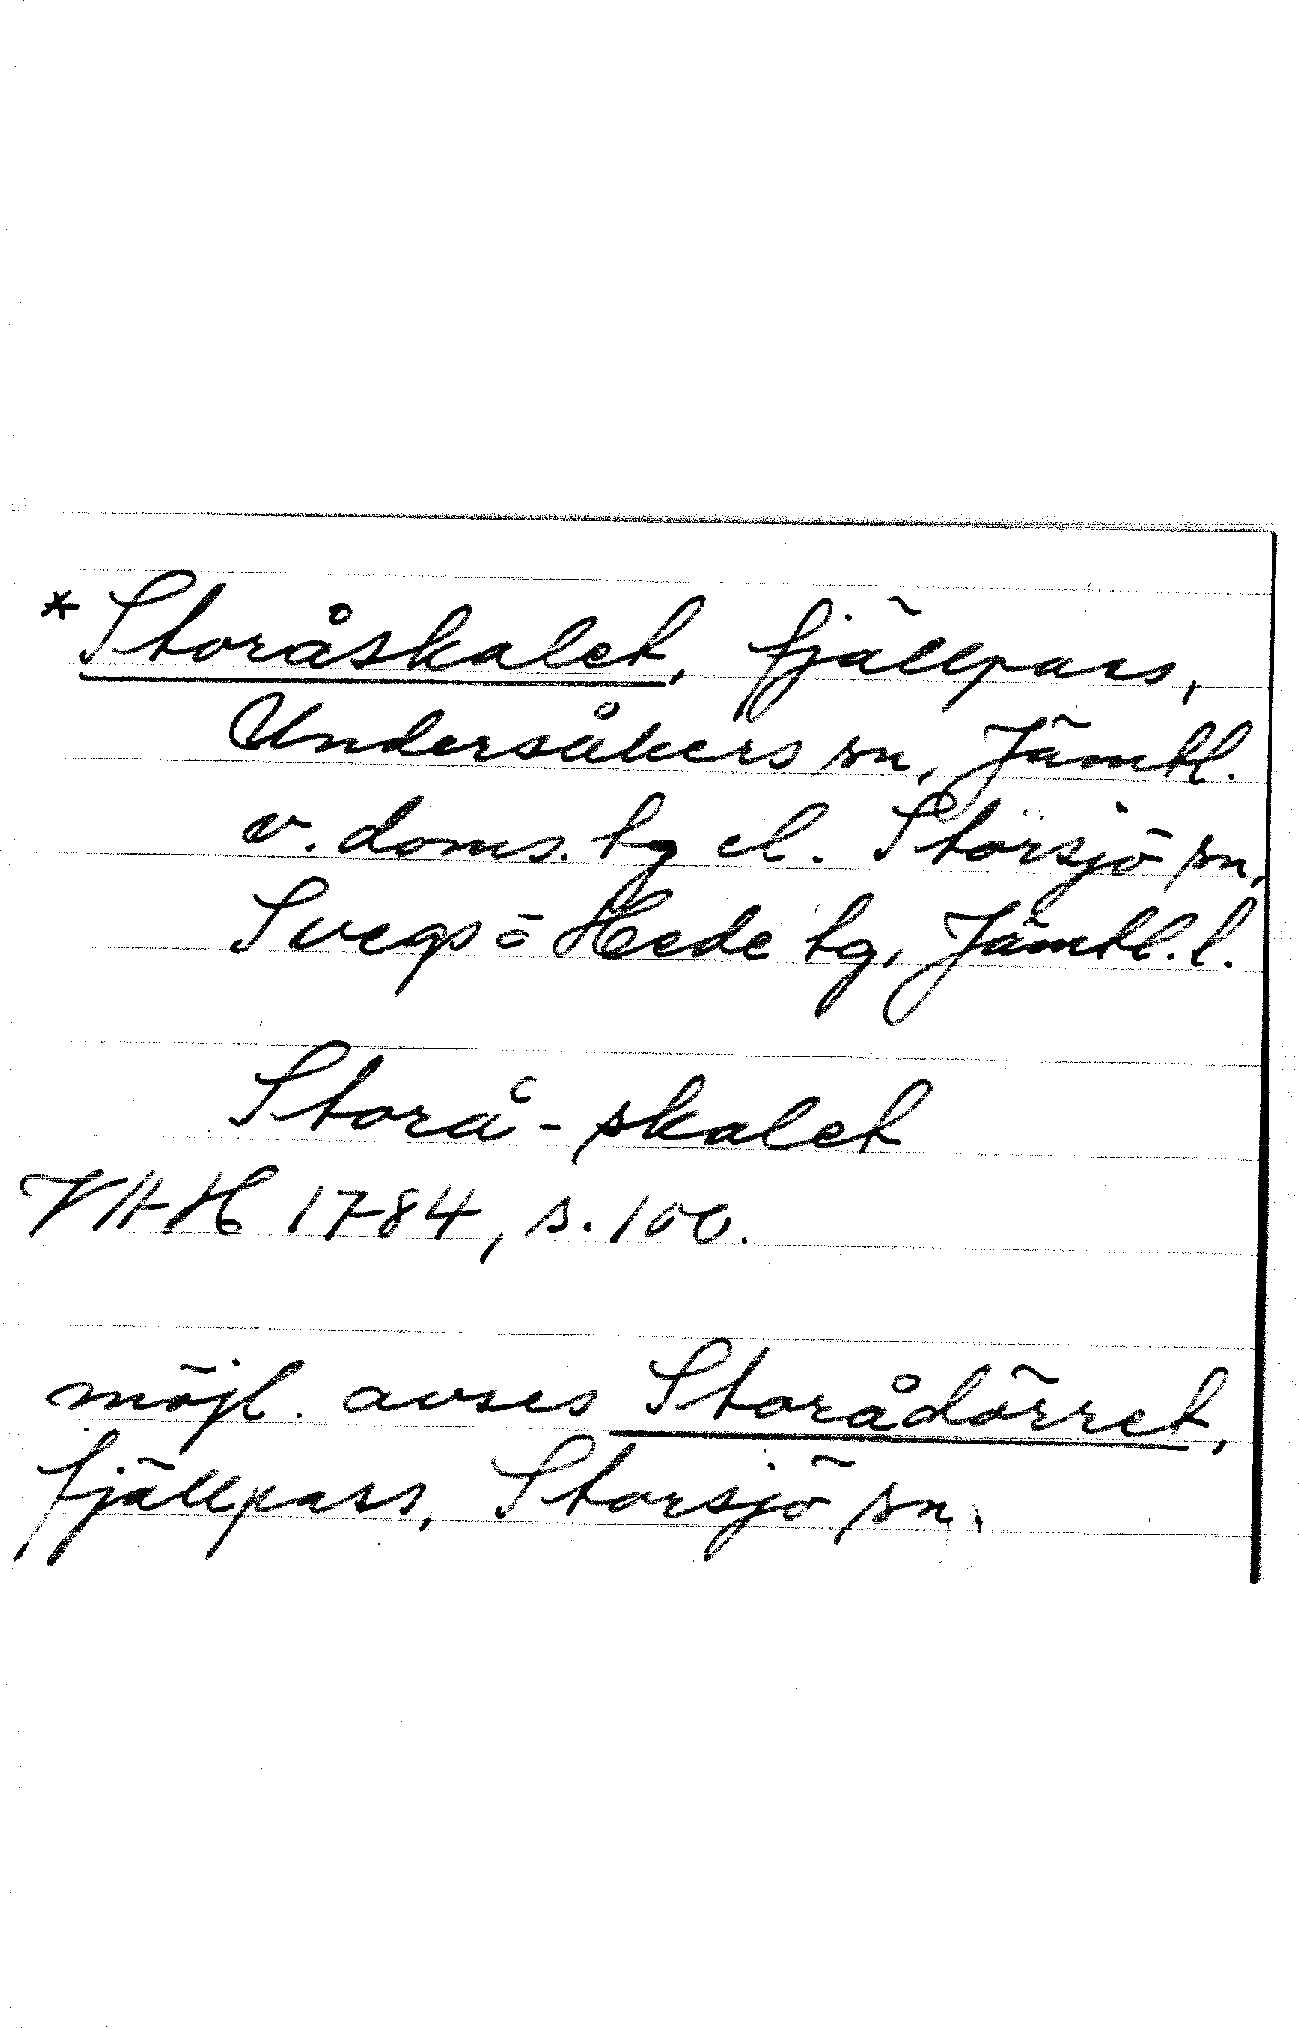 *Storåskalet, fjällpass,
Undersåkers sn, Jämtl.
v. doms. tg el. Storsjö sn,
Svegs=Hede tg, Jämtl. l.
Storå-skalet
VAH 1784, s. 100.
möjl. avses Storådörret,
fjällpass, Storsjö sn.